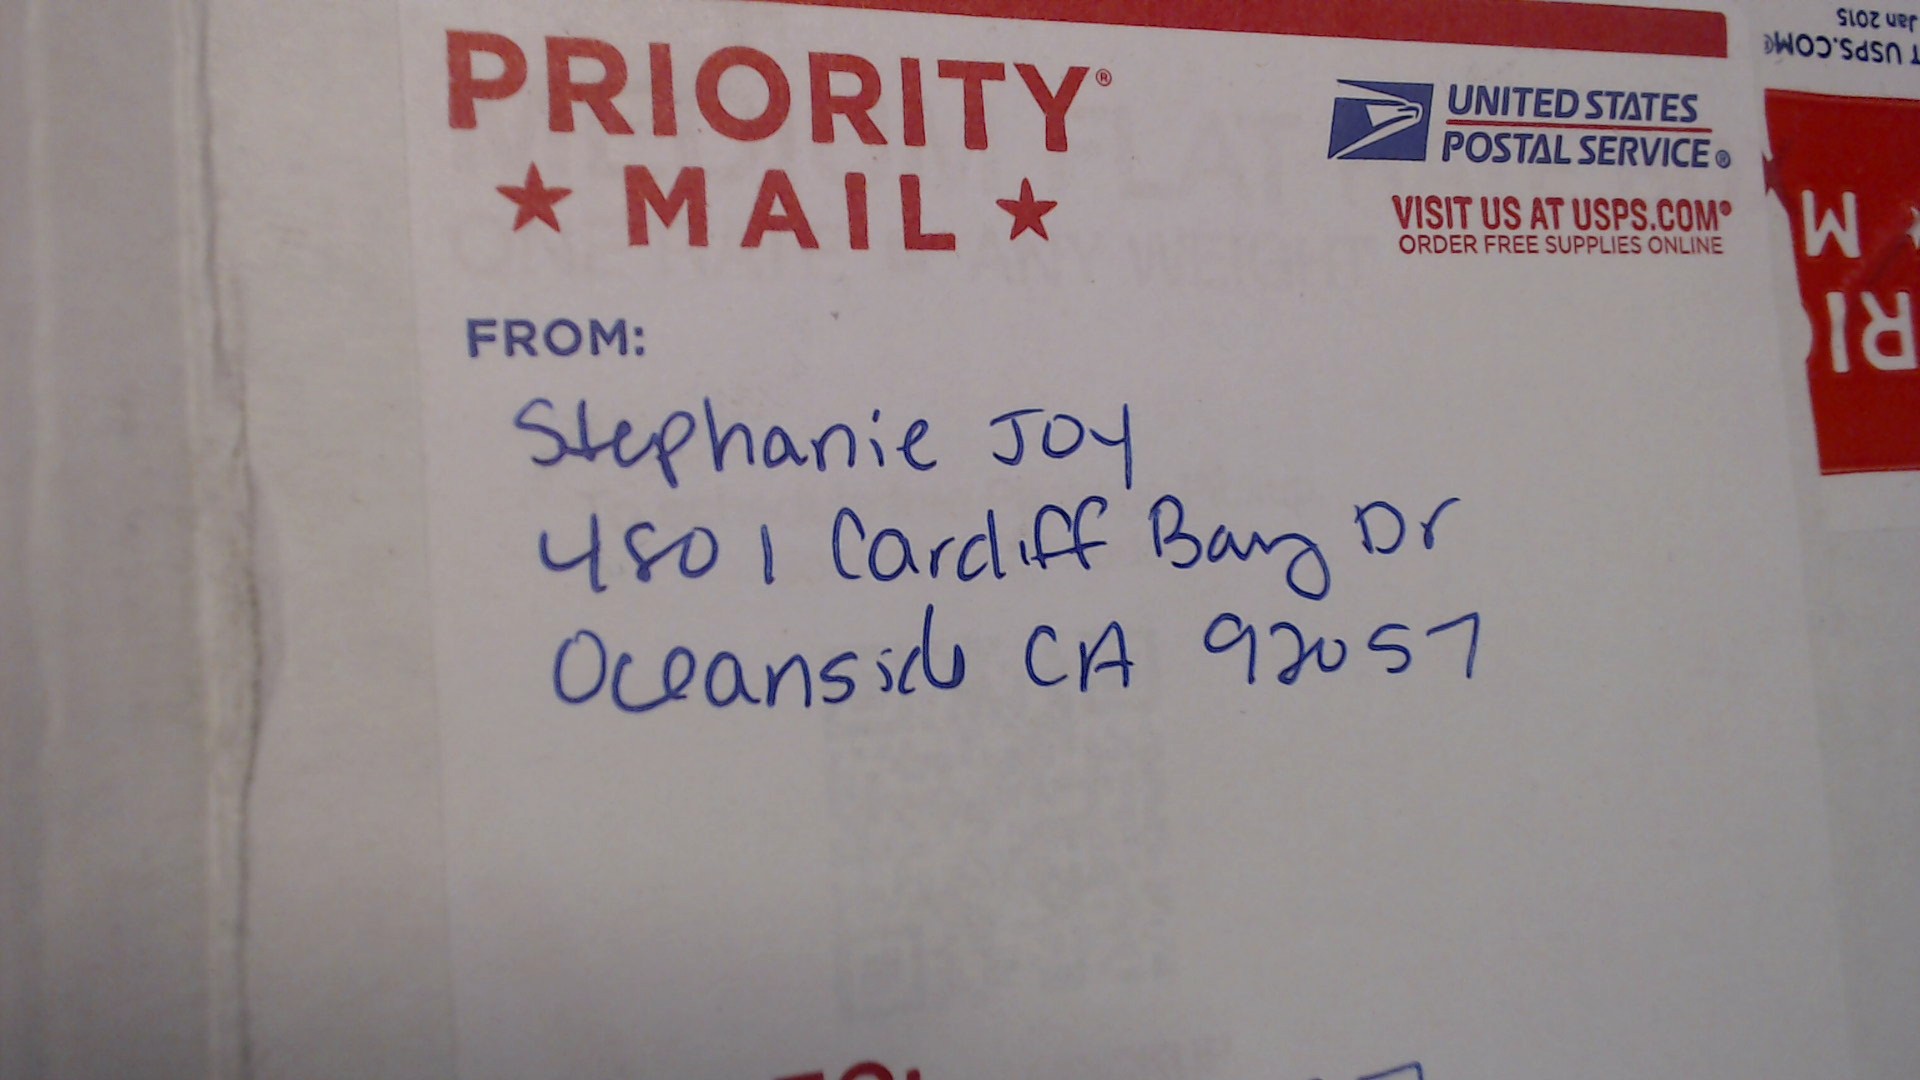 PRIORITY®
★ MAIL ★
UNITED STATES
POSTAL SERVICE®
VISIT US AT USPS.COM®
ORDER FREE SUPPLIES ONLINE
FROM:
Stephanie Joy
4801 Cardiff Bay Dr
Oceanside CA 92057
Jan 2015
T USPS.COM®
M
RI